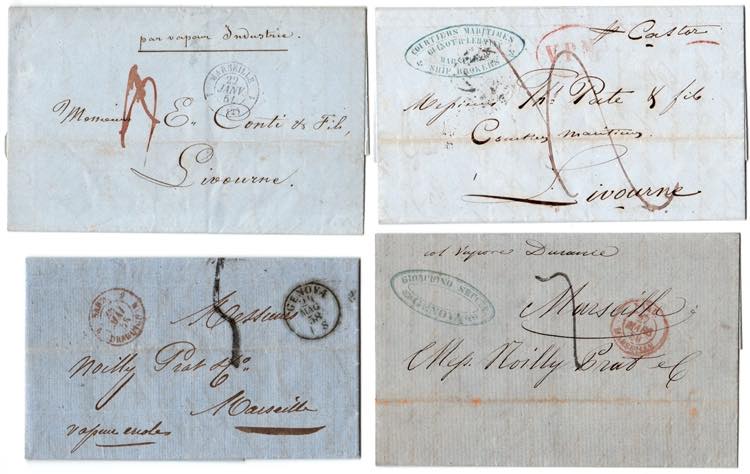 par vapeur Industrie.
MARSEILLE
22
JANV.
Monsieur E. Conti & Fils,
Livourne.
COURTIERS MARITIMES
SHIP BROKERS
V.P.M.
Castor
Messieurs Ths. Pate & fils
Courtiers maritimes
Livourne
GENOVA
MAG
58
8
5
Messieurs
Noilly Prat & Co.
Marseille
MAI
vapeur
col Vapore Durance
GENOVA
Marseille
MARSEILLE
Mess. Noilly Prat & C.